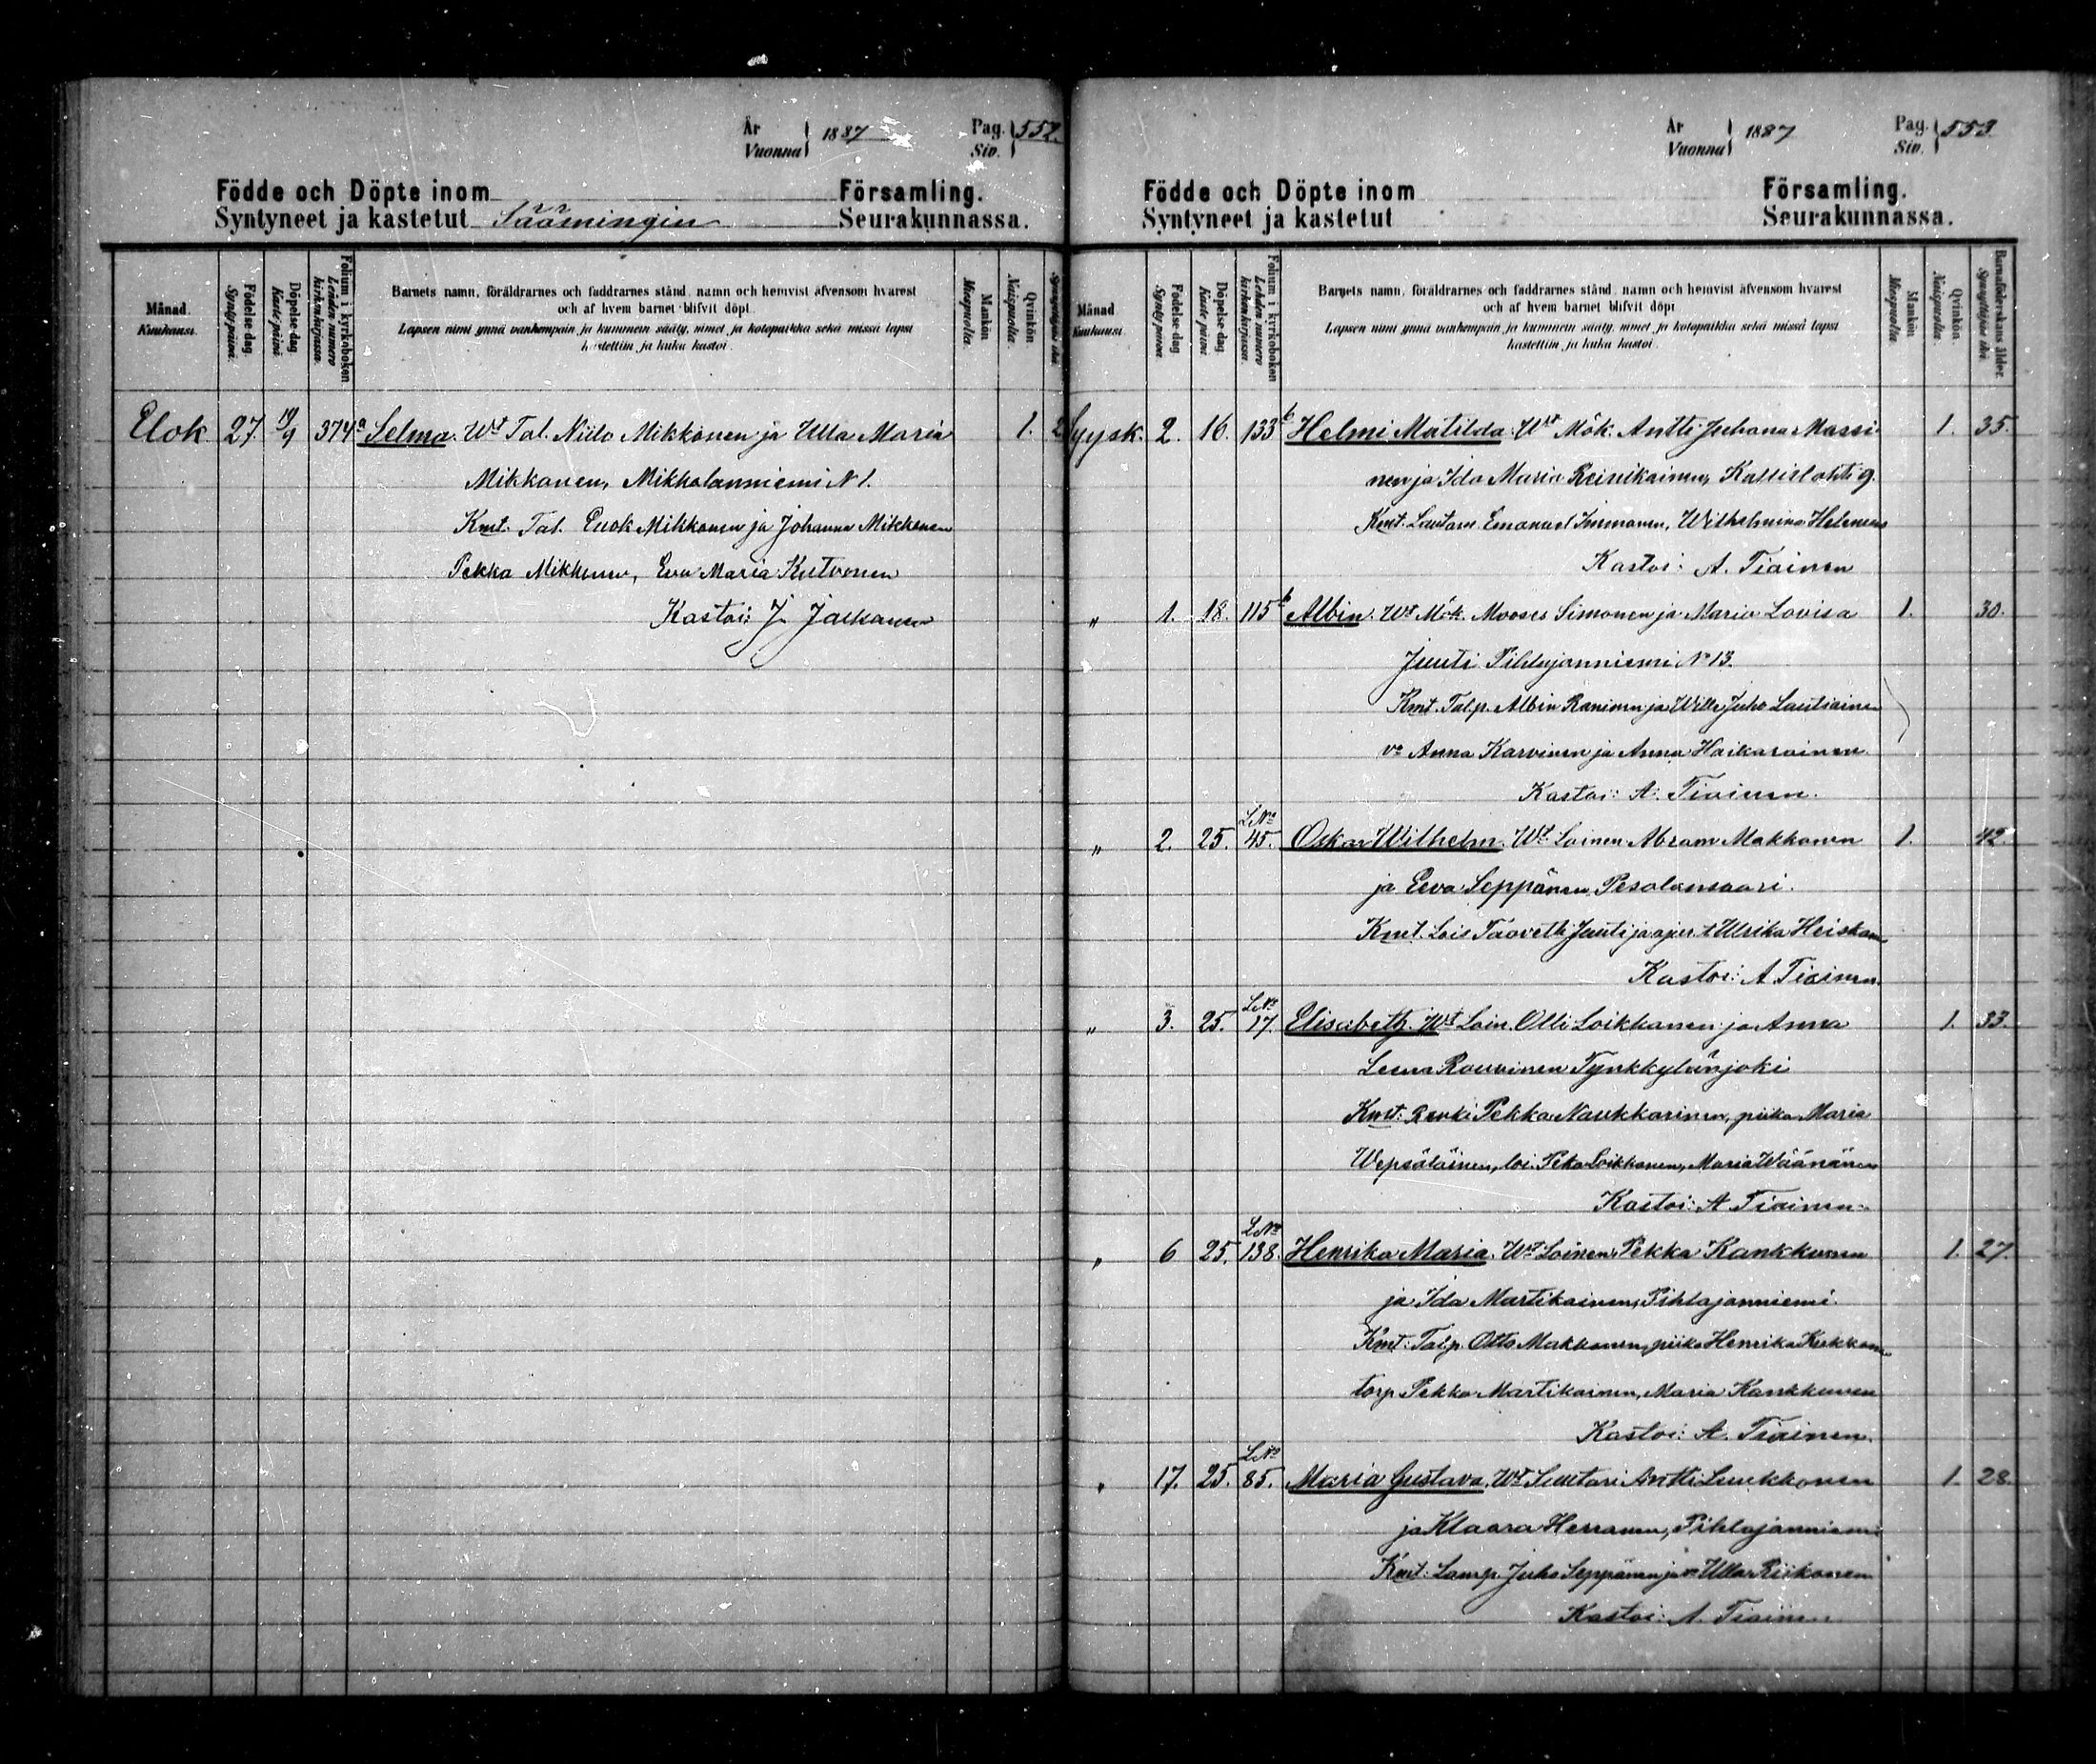 År Vuonna 1887 Pag. Siv. 552.
Födde och Döpte inom Församling.
Syntyneet ja kastetut Säämingin Seurakunnassa.
Månad. Kuukausi.
Födelse-dag. Syntypäivä.
Döpelse-dag Kastepäivä.
Folium i kyrkoboken Lehden numero kirkonkirjassa.
Barnets namn, föräldrarnes och faddrarnes stånd, namn och hemvist äfvensom hvarest
och af hvem barnet blifvit döpt.
Lapsen nimi ynnä vanhempain ja kummein sääty, nimet ja kotopaikka sekä missä lapsi
kastettiin ja kuka kastoi.
Mankön Miespuolta.
Qvinkön Naispuolta.
Elok 27. 10/9 374 a Selma. Wt Tal. Niilo Mikkonen ja Ulla Maria 1.
Mikkonen, Mikkolanniemi N 1.
Kmt. Tal. Enok Mikkonen ja Johanna Mikkonen
Pekka Mikkonen, Eva Maria Kutvonen
Kastoi: J. Jalkanen
År Vuonna 1887 Pag. Siv. 553.
Födde och Döpte inom Församling.
Syntyneet ja kastetut Seurakunnassa.
Månad Kuukausi.
Födelse-dag Syntypäivä.
Döpelse-dag Kastepäivä.
Folium i kyrkoboken Lehden numero kirkonkirjassa.
Barnets namn, föräldrarnes och faddrarnes stånd, namn och hemvist äfvensom hvarest
och af hvem barnet blifvit döpt
Lapsen nimi ynnä vanhempain ja kummein sääty, nimet ja kotopaikka sekä missä lapsi
kastettiin ja kuka kastoi.
Mankön Miespuolta.
Qvinkön. Naispuolta.
Barnaföderskans ålder. Synnyttäjän ikä.
Syysk. 2. 16. 133 b Helmi Matilda. Wt Mök. Antti Juhana Massi- 1. 35.
nen ja Ida Maria Reinikainen, Kallislahti 9.
Kmt. Lautam. Emanuel Immonen, Wilhelmina
Kastoi: A. Tiainen
" 1. 18. 115 b Albin. Wt Mök. Mooses Simonen ja Maria Lovisa 1. 30.
Juuti Pihlajanniemi No 13.
Kmt. Talp. Albin Raninen ja Wille Juho Lautiainen
va Anna Karvinen ja Anna Haikarainen.
Kastoi: A. Tiainen.
L.No
" 2. 25. 45. Oskar Wilhelm. Wt Loinen Abram Makkonen 1. 42.
ja Eeva Seppänen Pesolansaari.
Kmt. Lois Taavetti Juuti ja Ulrika Heiskanen
Kastoi: A Tiainen.
L.No
" 3. 25. 17. Elisabeth. Wt Loin. Olli Loikkanen ja Anna 1. 33.
Leena Rouvinen Tynkkylänjoki
Kmt: Renki Pekka Naukkarinen, piika Maria
Wepsäläinen, loi. Peka Loikkanen, Maria Wäänänen
Kastoi: A Tiainen.
L.No
" 6 25. 138. Henrika Maria. Wt Loinen Pekka Kankkunen 1. 27.
ja Ida Martikainen, Pihlajanniemi.
Kmt: Talp. Otto Makkonen, piika Henrika
torp. Pekka Martikainen, Maria Kankkunen
Kastoi: A. Tiainen.
L.No
" 17. 25. 85. Maria Gustava. Wt Suutari Antti Luukkonen 1. 28.
ja Klaara Herranen, Pihlajanniemi
Kmt: Lamp. Juho Seppänen ja va Ulla Riikonen
Kastoi: A. Tiainen